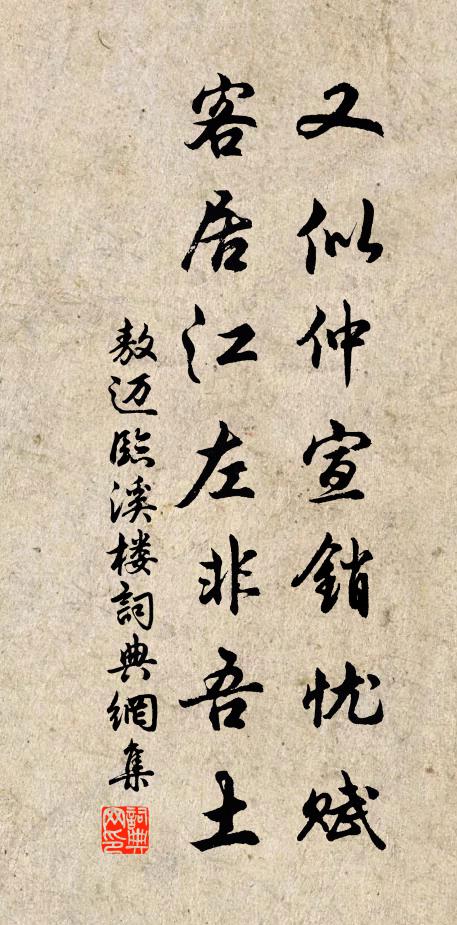 又似仲宣銷忧赋
客居江左非吾土
敖迈临溪楼詞典網集
詞典网印